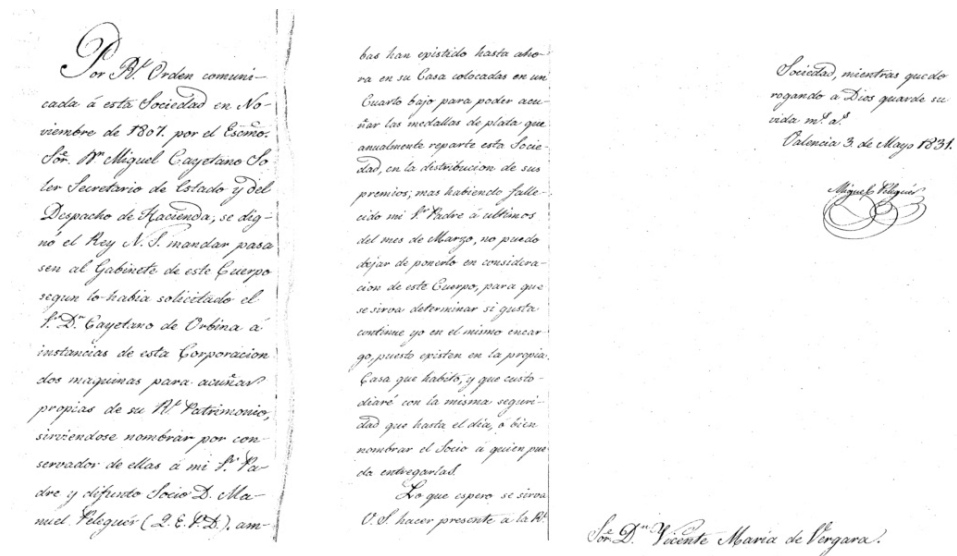 Por Rl. Orden comuni-
cada á esta Sociedad en No-
viembre de 1801. por el Escmo.
Sor. Dn. Miguel Cayetano So
ler Secretario de Estado y del
Despacho de Hacienda, se dig-
nó el Rey N. S. mandar pasa
sen al Gabinete de este Cuerpo
segun lo habia solicitado el
Sr. Dn. Cayetano de Orbina á
instancias de esta Corporacion
dos maquinas para acuñar
propias de su Rl. Patrimonio,
sirviendose nombrar por con-
servador de ellas á mi Sr. Pa-
dre y difunto Socio D. Ma-
nuel Peleguér (Q. E. P. D.). am-
bas han existido hasta aho-
ra en su Casa colocadas en un
Cuarto bajo para poder acu-
ñar las medallas de plata que
anualmente reparte esta Socie-
dad, en la distribucion de sus
premios; mas habiendo falle-
cido mi Sr. Padre á ultimos
del mes de Marzo, no puedo
dejar de ponerlo en considera-
cion de este Cuerpo, para que
se sirva determinar si gusta
continue yo en el mismo encar-
go, puesto existen en la propia
Casa que habito, y que custo-
diaré con la misma seguri-
dad que hasta el dia, ó bien
nombrar el Socio á quien pue
da entregarlas.
Lo que espero se sirva
V. S. hacer presente a la Rl.
Sociedad, mientras quedo
rogando a Dios guarde su
vida ms. as.
Valencia 3. de Mayo 1831.
Miguel Peleguér
Sor. Dn. Vicente Maria de Vergara.